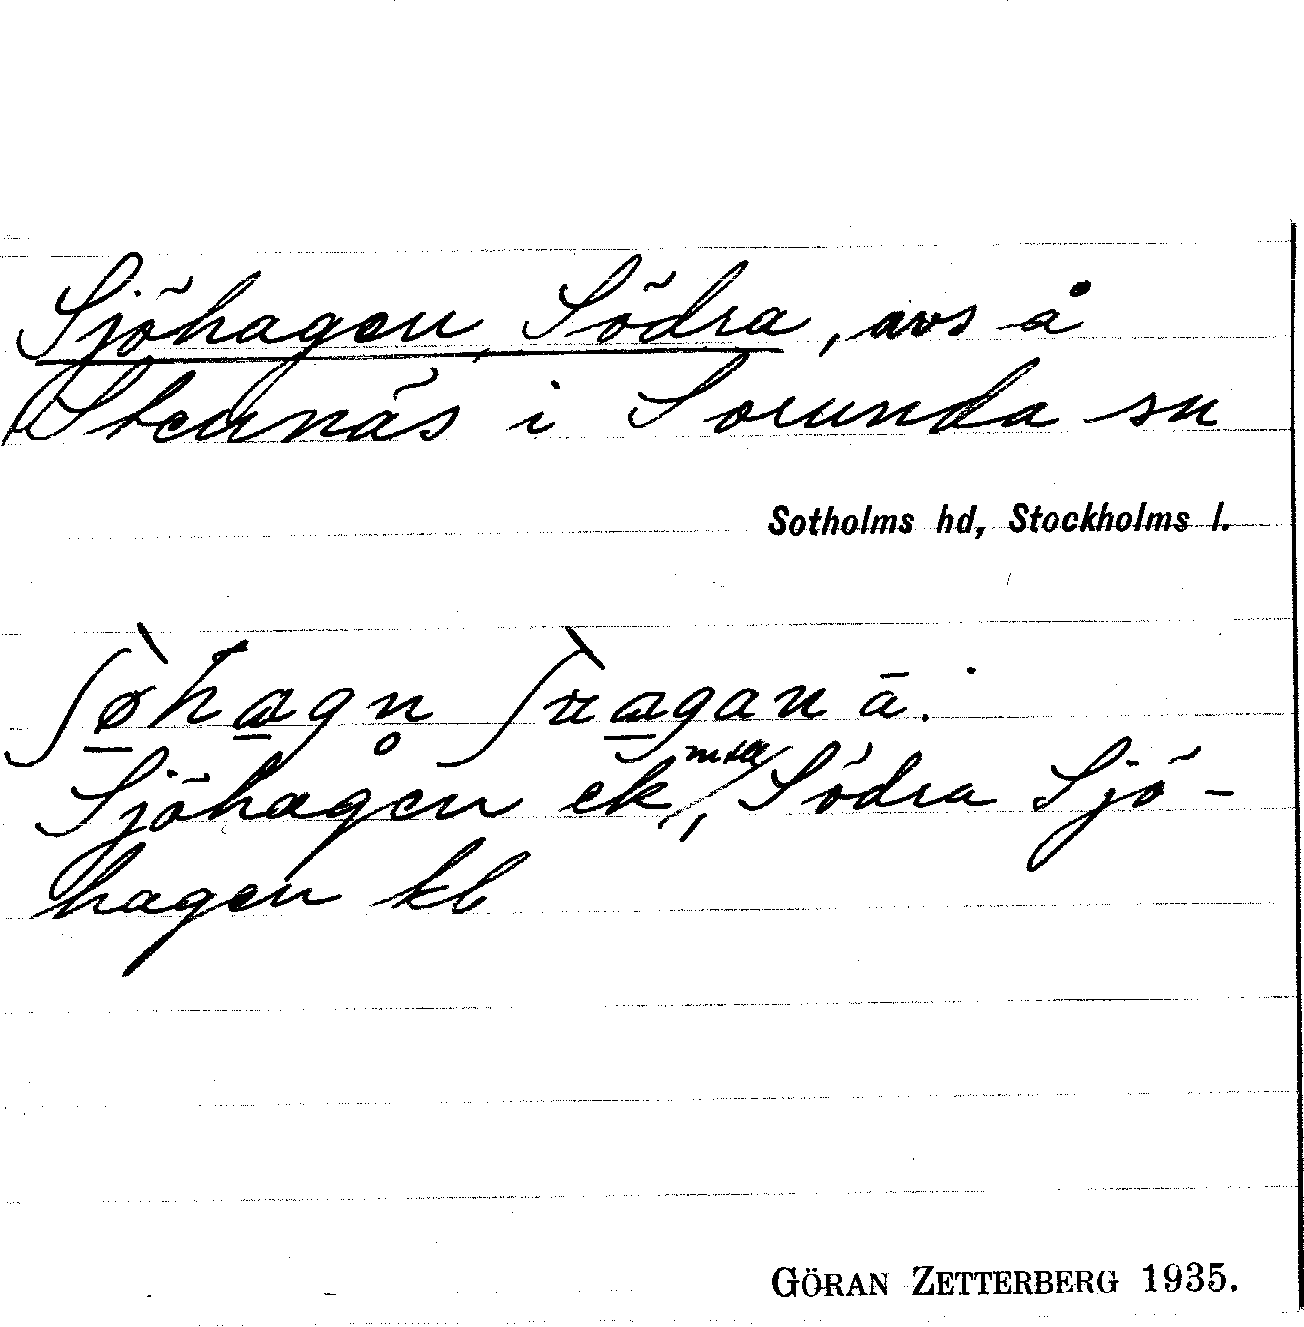 Sjöhagen, Södra, avs å
Stennäs i Sorunda sn
Sotholms hd, Stockholms l.
Sjöhagen ek msa, Södra Sjö-
hagen kb
GÖRAN ZETTERBERG 1935.